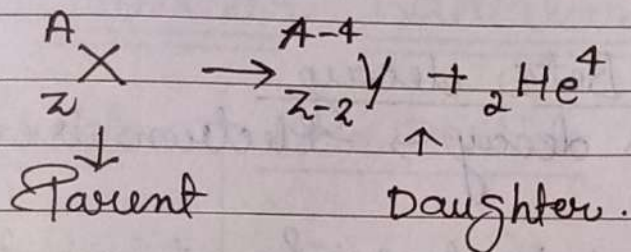 ᴬ_Z X → ᴬ⁻⁴_Z₋₂ Y + ₂He⁴
↓ ↑
Parent Daughter.